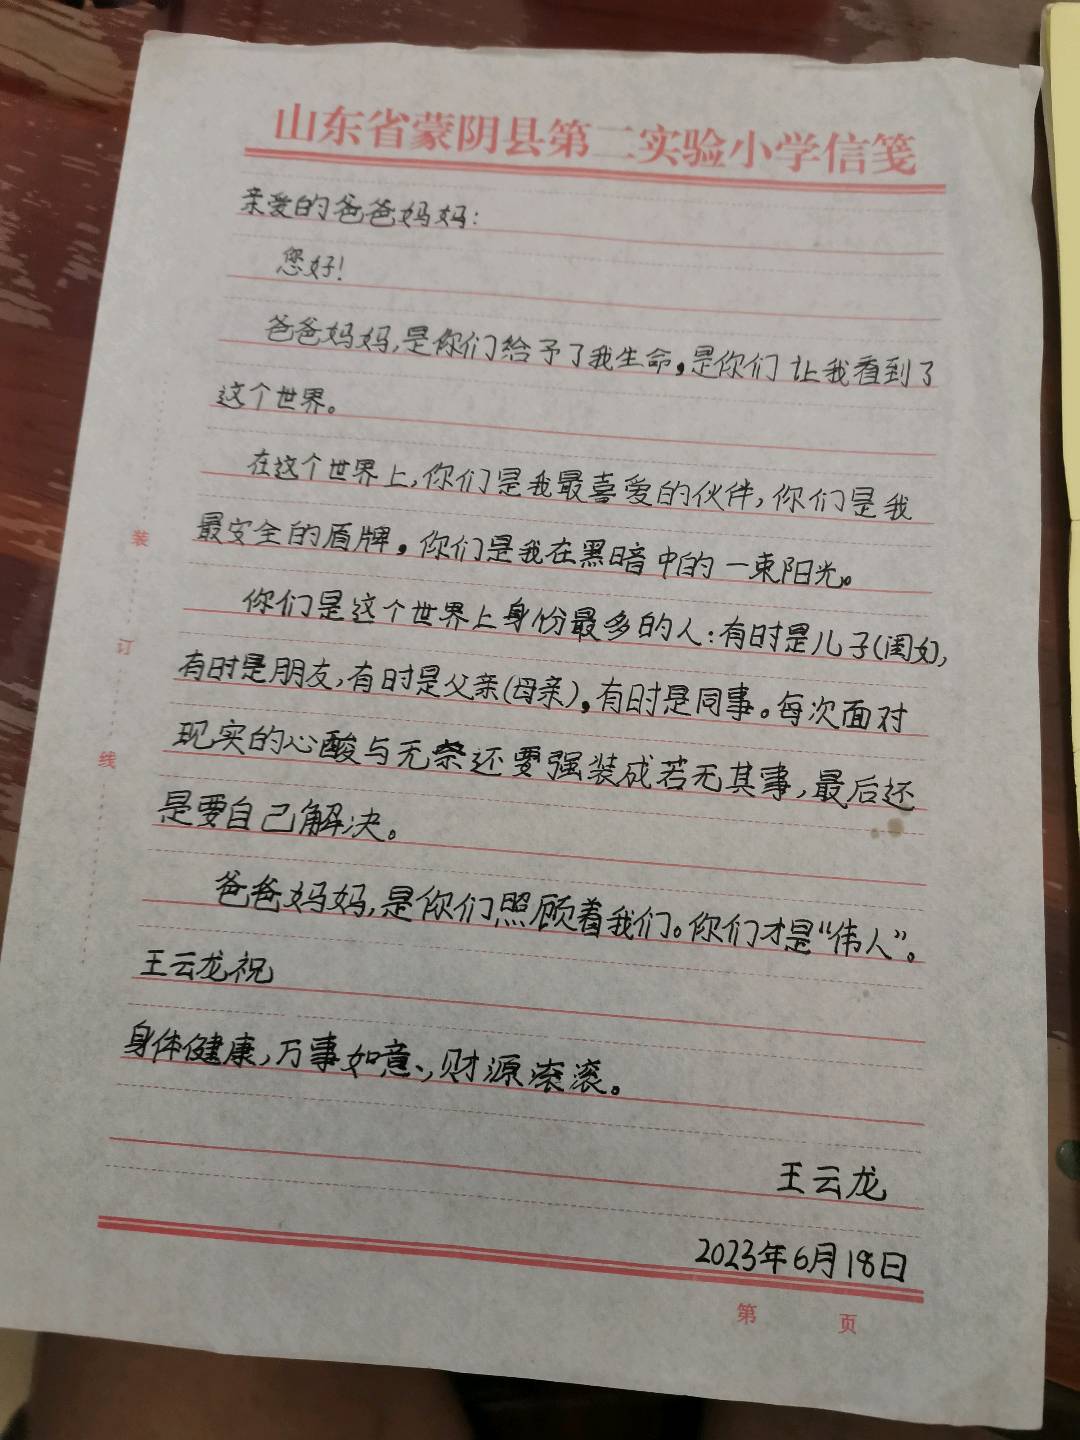 山东省蒙阴县第二实验小学信笺
亲爱的爸爸妈妈：
您好！
爸爸妈妈，是你们给予了我生命，是你们让我看到了
这个世界。
在这个世界上，你们是我最喜爱的伙伴，你们是我
最安全的盾牌，你们是我在黑暗中的一束阳光。
你们是这个世界上身份最多的人：有时是儿子（闺女），
有时是朋友，有时是父亲（母亲），有时是同事。每次面对
现实的心酸与无奈还要强装成若无其事，最后还
是要自己解决。
爸爸妈妈，是你们照顾着我们。你们才是“伟人”。
王云龙祝
身体健康，万事如意、，财源滚滚。
王云龙
2023年6月18日
第 页
装
订
线